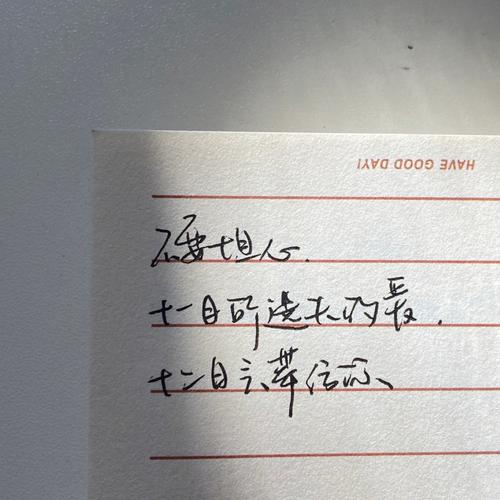 HAVE GOOD DAY!
不要担心.
十一月所遗失的爱.
十二月会